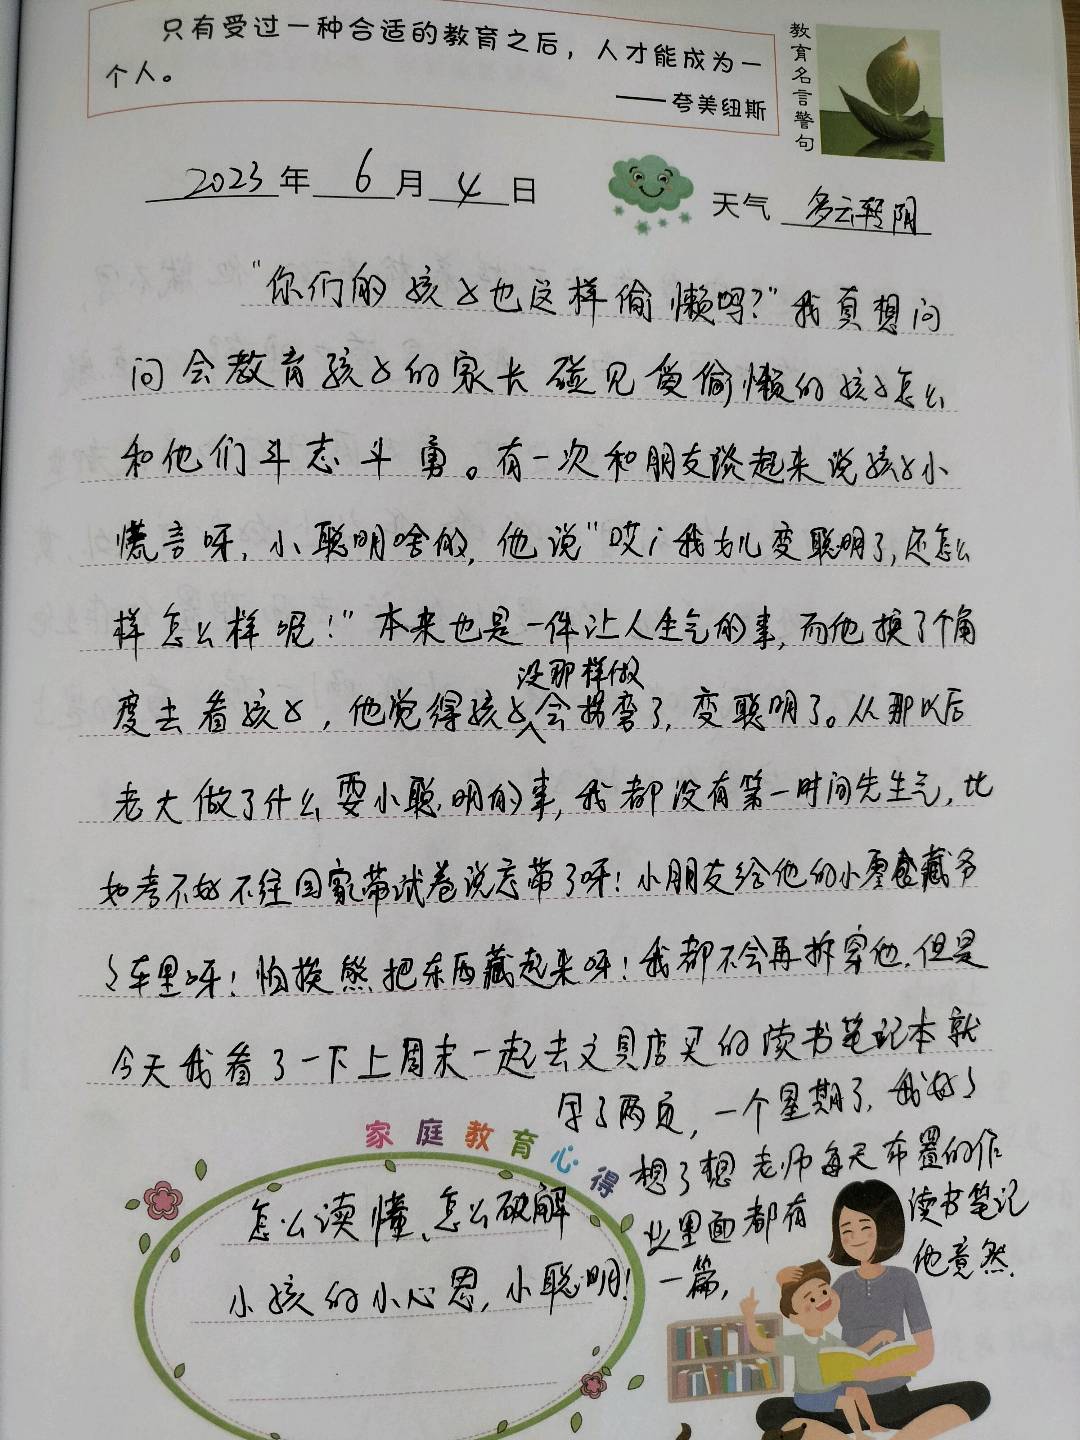 只有受过一种合适的教育之后，人才能成为一
个人。
——夸美纽斯
教育名言警句
2023年 6 月 4 日
天气 多云转阴
“你们的孩子也这样偷懒吗？”我真想问
问会教育孩子的家长碰见爱偷懒的孩子怎么
和他们斗志斗勇。有一次和朋友谈起来说孩子小
慌言呀，小聪明啥的，他说“哎！我女儿变聪明了，还怎么
样怎么样呢！”本来也是一件让人生气的事，而他换了个角
没那样做
度去看孩子，他觉得孩子会拐弯了，变聪明了。从那以后
老大做了什么耍小聪明的事，我都没有第一时间先生气，比
如考不好不往回家带试卷说忘带了呀！小朋友给他的小零食藏爷
爷车里呀！怕挨熊把东西藏起来呀！我都不会再拆穿他，但是
今天我看了一下上周末一起去文具店买的读书笔记本就
写了两页，一个星期了，我好好
想了想 老师每天布置的作
业里面都有 读书笔记
一篇， 他竟然
家庭教育心得
怎么读懂、怎么破解
小孩的小心思，小聪明！